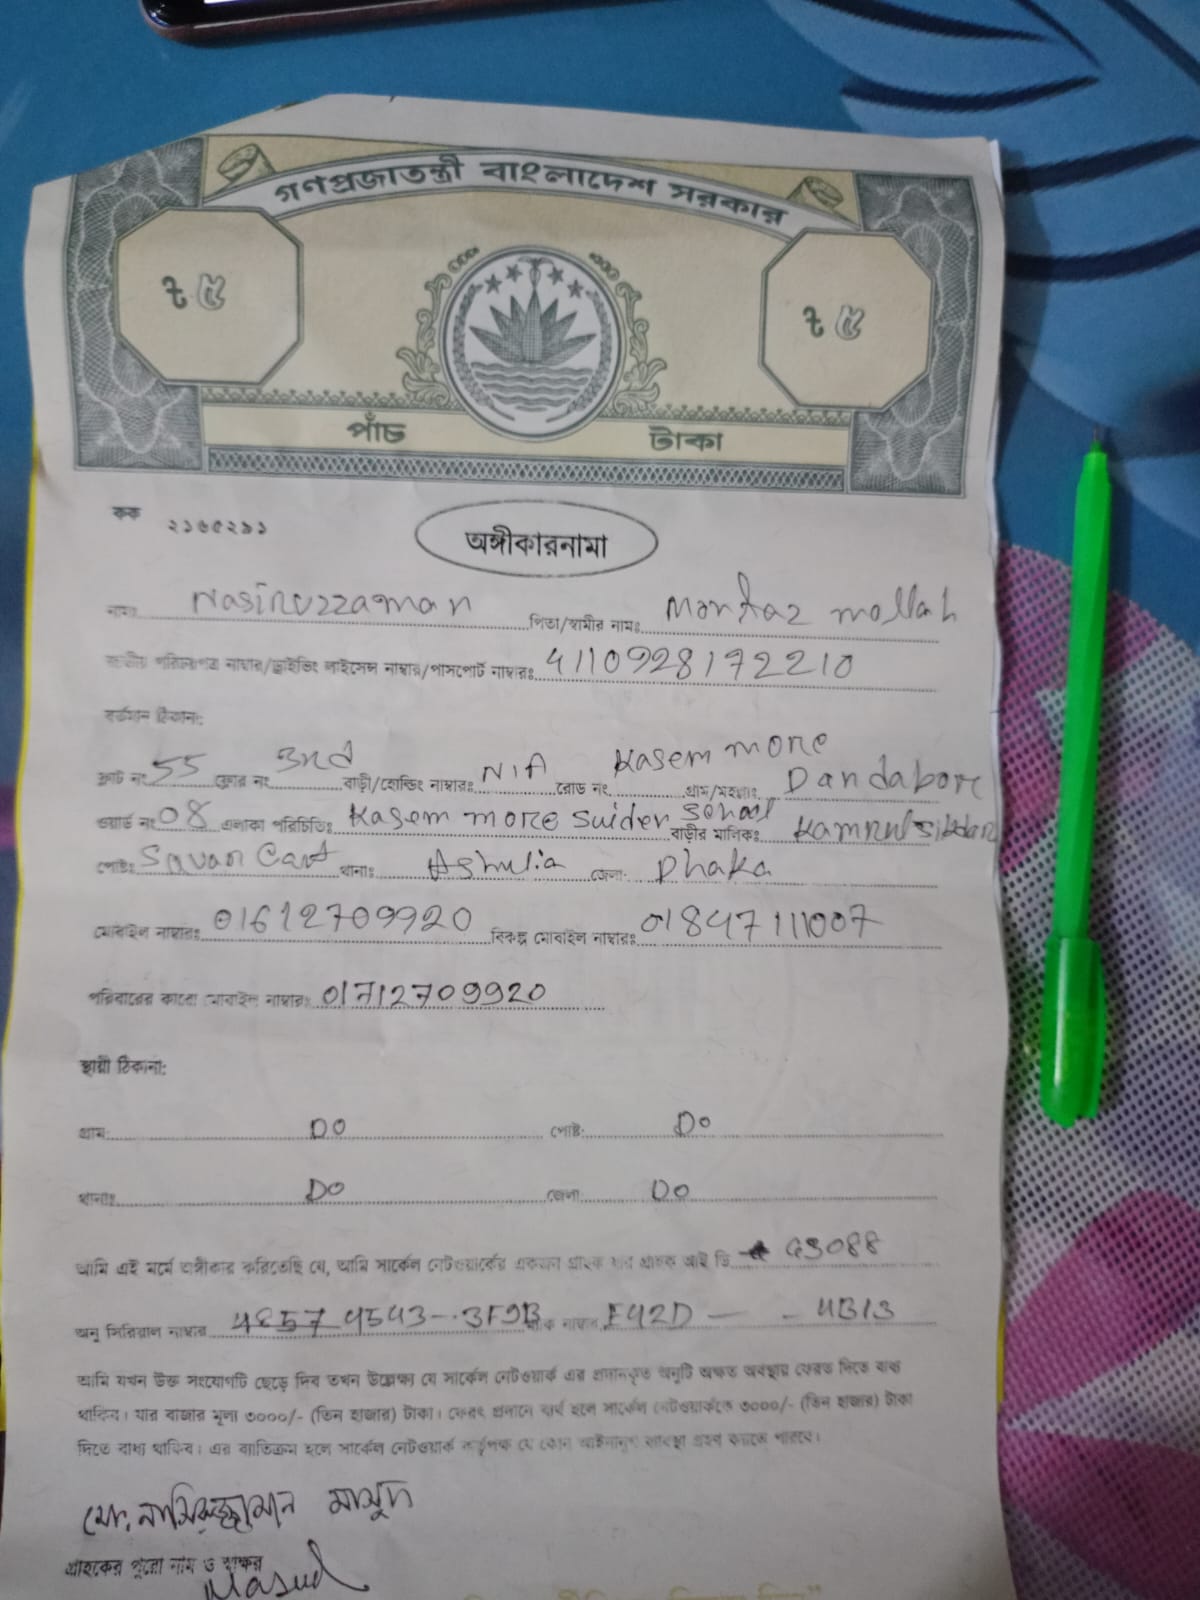 গণপ্রজাতন্ত্রী বাংলাদেশ সরকার
ট ৫ ট ৫
পাঁচ টাকা
কক ২১৬৫২৯১
অঙ্গীকারনামা
নামঃ Nasiruzzaman পিতা/স্বামীর নামঃ Montaz mollah
জাতীয় পরিচয়পত্র নাম্বার/ড্রাইভিং লাইসেন্স নাম্বার/পাসপোর্ট নাম্বারঃ 4110928172210
বর্তমান ঠিকানা:
ফ্লাট নং 55 ফ্লোর নং 3rd বাড়ী/হোল্ডিং নাম্বারঃ N/A রোড নং Kasem more গ্রাম/মহল্লাঃ Dandabore
ওয়ার্ড নং 08 এলাকা পরিচিতিঃ Kasem more suider school বাড়ীর মালিকঃ Kamrul sikdar
পোষ্টঃ Savar Cant থানাঃ Ashulia জেলা: Dhaka
মোবাইল নাম্বারঃ 01612709920 বিকল্প মোবাইল নাম্বারঃ 01847111007
পরিবারের কারো মোবাইল নাম্বারঃ 01712709920
স্থায়ী ঠিকানা:
গ্রাম: DO পোষ্ট: DO
থানাঃ DO জেলা: DO
আমি এই মর্মে অঙ্গীকার করিতেছি যে, আমি সার্কেল নেটওয়ার্কের একজন গ্রাহক যার গ্রাহক আই ডি GS088
অনু সিরিয়াল নাম্বার 48574543--3F9B ম্যাক নাম্বার E42D — - 4B13
আমি যখন উক্ত সংযোগটি ছেড়ে দিব তখন উল্লেক্ষ্য যে সার্কেল নেটওয়ার্ক এর প্রদানকৃত অনুটি অক্ষত অবস্থায় ফেরত দিতে বাধ্য
থাকিব। যার বাজার মূল্য ৩০০০/- (তিন হাজার) টাকা। ফেরৎ প্রদানে ব্যর্থ হলে সার্কেল নেটওয়ার্ককে ৩০০০/- (তিন হাজার) টাকা
দিতে বাধ্য থাকিব। এর ব্যতিক্রম হলে সার্কেল নেটওয়ার্ক কর্তৃপক্ষ যে কোন আইনানুগ ব্যবস্থা গ্রহণ করতে পারবে।
মো. নাসিরুজ্জামান মাসুদ
গ্রাহকের পুরো নাম ও স্বাক্ষর
Masud